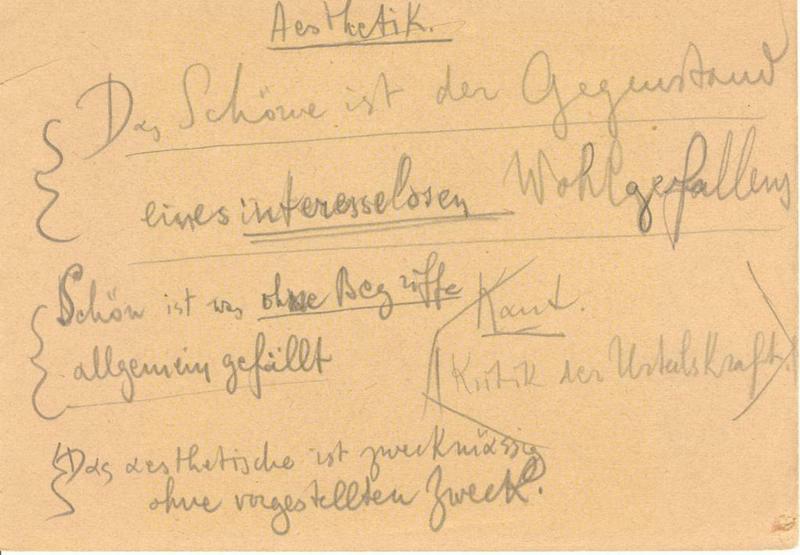 Aesthetik.
Das Schöne ist der Gegenstand
eines interesselosen Wohlgefallens
Schön ist was ohne Begriffe
allgemein gefällt
Kant.
Kritik der Urteilskraft.
Das aesthetische ist zweckmässig
ohne vorgestellten Zweck.